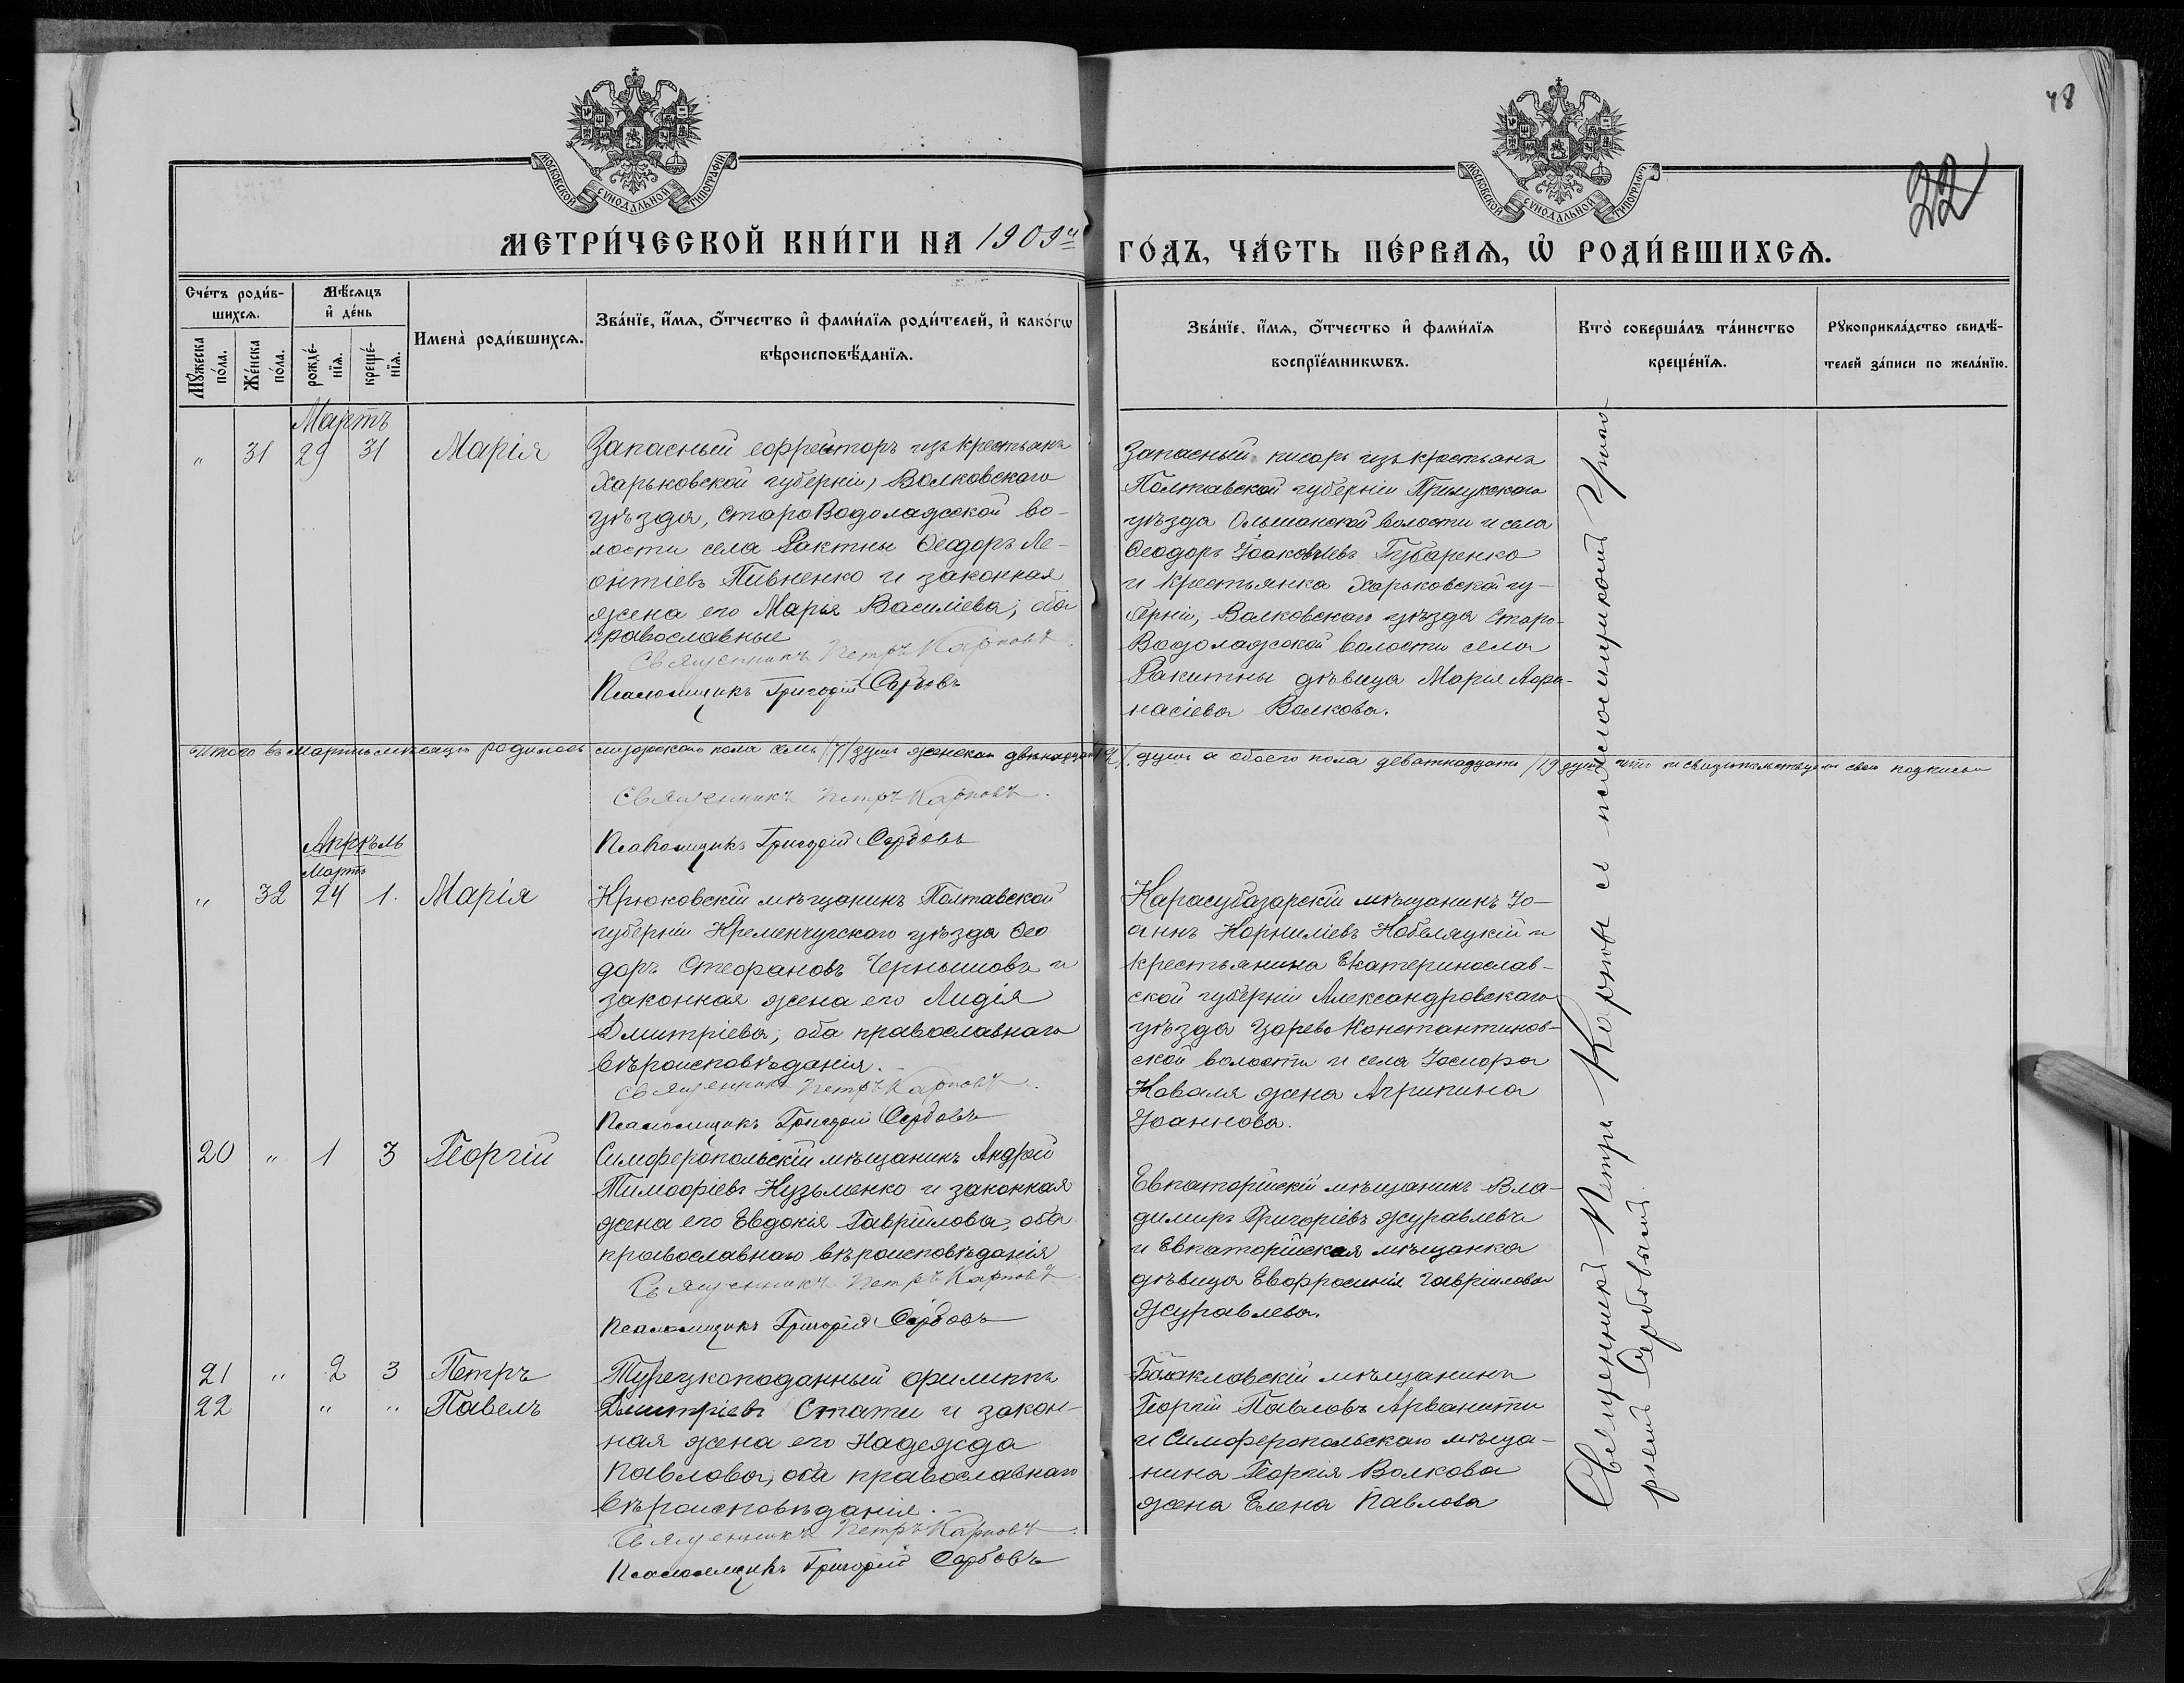 48
22
МОСКОВСКОЙ СѴНОДАЛЬНОЙ ТИПОГРАФІИ
МОСКОВСКОЙ СѴНОДАЛЬНОЙ ТИПОГРАФІИ
МЕТРИ́ЧЕСКОЙ КНИ́ГИ НА 1909й ГО́ДЪ, ЧА́СТЬ ПЕ́РВАѦ, Ѽ РОДИ́ВШИХСѦ.
Сче́тъ роди́в-
шихсѧ.
Мꙋ́жеска по́ла.
Же́нска по́ла.
Мѣ́сѧцъ и҆ де́нь
рожде́-
нїѧ.
креще́-
нїѧ.
Имена̀ роди́вшихсѧ.
Зва́нїе, и҆́мѧ, ѻ҆́тчество и҆ фами́лїѧ роди́телей, и҆ како́гѡ
вѣроисповѣ́данїѧ.
Зва́нїе, и҆́мѧ, ѻ҆́тчество и҆ фами́лїѧ
воспрїе́мникѡвъ.
Кто̀ соверша́лъ та́инство
креще́нїѧ.
Рꙋкоприкла́дство свидѣ́-
телей за́писи по жела́нїю.
Мартъ
" 31 29 31 Марія
Запасный ефрейторъ изъ крестьянъ
Харьковской губерніи, Волковскаго
уѣзда, Староводолажской во-
лости села Рактны Ѳеодоръ Ле-
онтіевъ Пивненко и законная
жена его Марія Василіева; оба
православные
Священникъ Петръ Карповъ.
Псаломщикъ Григорій Сербовъ
Запасный писарь изъ крестьянъ
Полтавской губерніи Прилукскаго
уѣзда Ольшанской волости и села
Ѳеодоръ Іоаковлевъ Губаренко
и крестьянка Харьковской гу-
берніи, Волковскаго уѣзда Старо-
Водолажской волости села
Ракитны дѣвица Марія Аѳа-
насіева Волкова.
Итого въ Мартѣ мѣсяцѣ родилось мужескаго пола семь /7/ душъ женскаго двѣнадцать /12/ душъ а обоего пола девятнадцать /19 душъ что и свидѣтельствуемъ своею подписью
Священникъ Петръ Карповъ.
Псаломщикъ Григорій Сербовъ
Апрѣль
Мартъ
" 32 24 1. Марія
Крюковскій мѣщанинъ Полтавской
губерніи Кременчугскаго уѣзда Ѳео
доръ Стефановъ Чернышовъ и
законная жена его Лидія
Дмитріева; оба православнаго
вѣроисповѣданія.
Священникъ Петръ Карповъ.
Псаломщикъ Григорій Сербовъ
Карасубазарскій мѣщанинъ Іо-
аннъ Корниліевъ Кобеляцкій и
крестьянина Екатеринослав-
ской губерніи Александровскаго
уѣзда Царево Константинов-
ской волости и села Іосифа
Коваля жена Агрипина
Іоаннова.
20 " 1 3 Георгій
Симферопольскій мѣщанинъ Андрей
Тимофіевъ Кузьменко и законная
жена его Евдокія Гавріилова, оба
православнаго вѣроисповѣданія
Священникъ Петръ Карповъ
Псаломщикъ Григорій Сербовъ
Евпаторійскій мѣщанинъ Вла-
димиръ Григоріевъ Журавлевъ
и Евпаторійская мѣщанка
дѣвица Евфросинія Гавріилова
Журавлева.
21 " 2 3 Петръ
22 " " Павелъ
Турецкоподанный Филиппъ
Дмитріевъ Стати и закон-
ная жена его Надежда
Павлова, оба православнаго
вѣроисповѣданія.
Священникъ Петръ Карповъ.
Псаломщикъ Григорій Сербовъ
Балаклавскій мѣщанинъ
Георгій Павловъ Арванити
и Симферопольскаго мѣща-
нина Георгія Волкова
жена Елена Павлова
Священникъ Петръ Карповъ съ псаломщикомъ Григо-
ріемъ Сербовымъ.